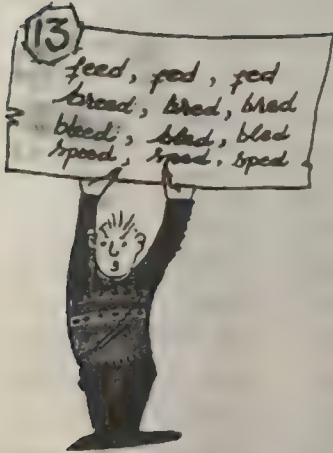 13
feed, fed, fed
breed, bred, bred
bleed, bled, bled
speed, sped, sped